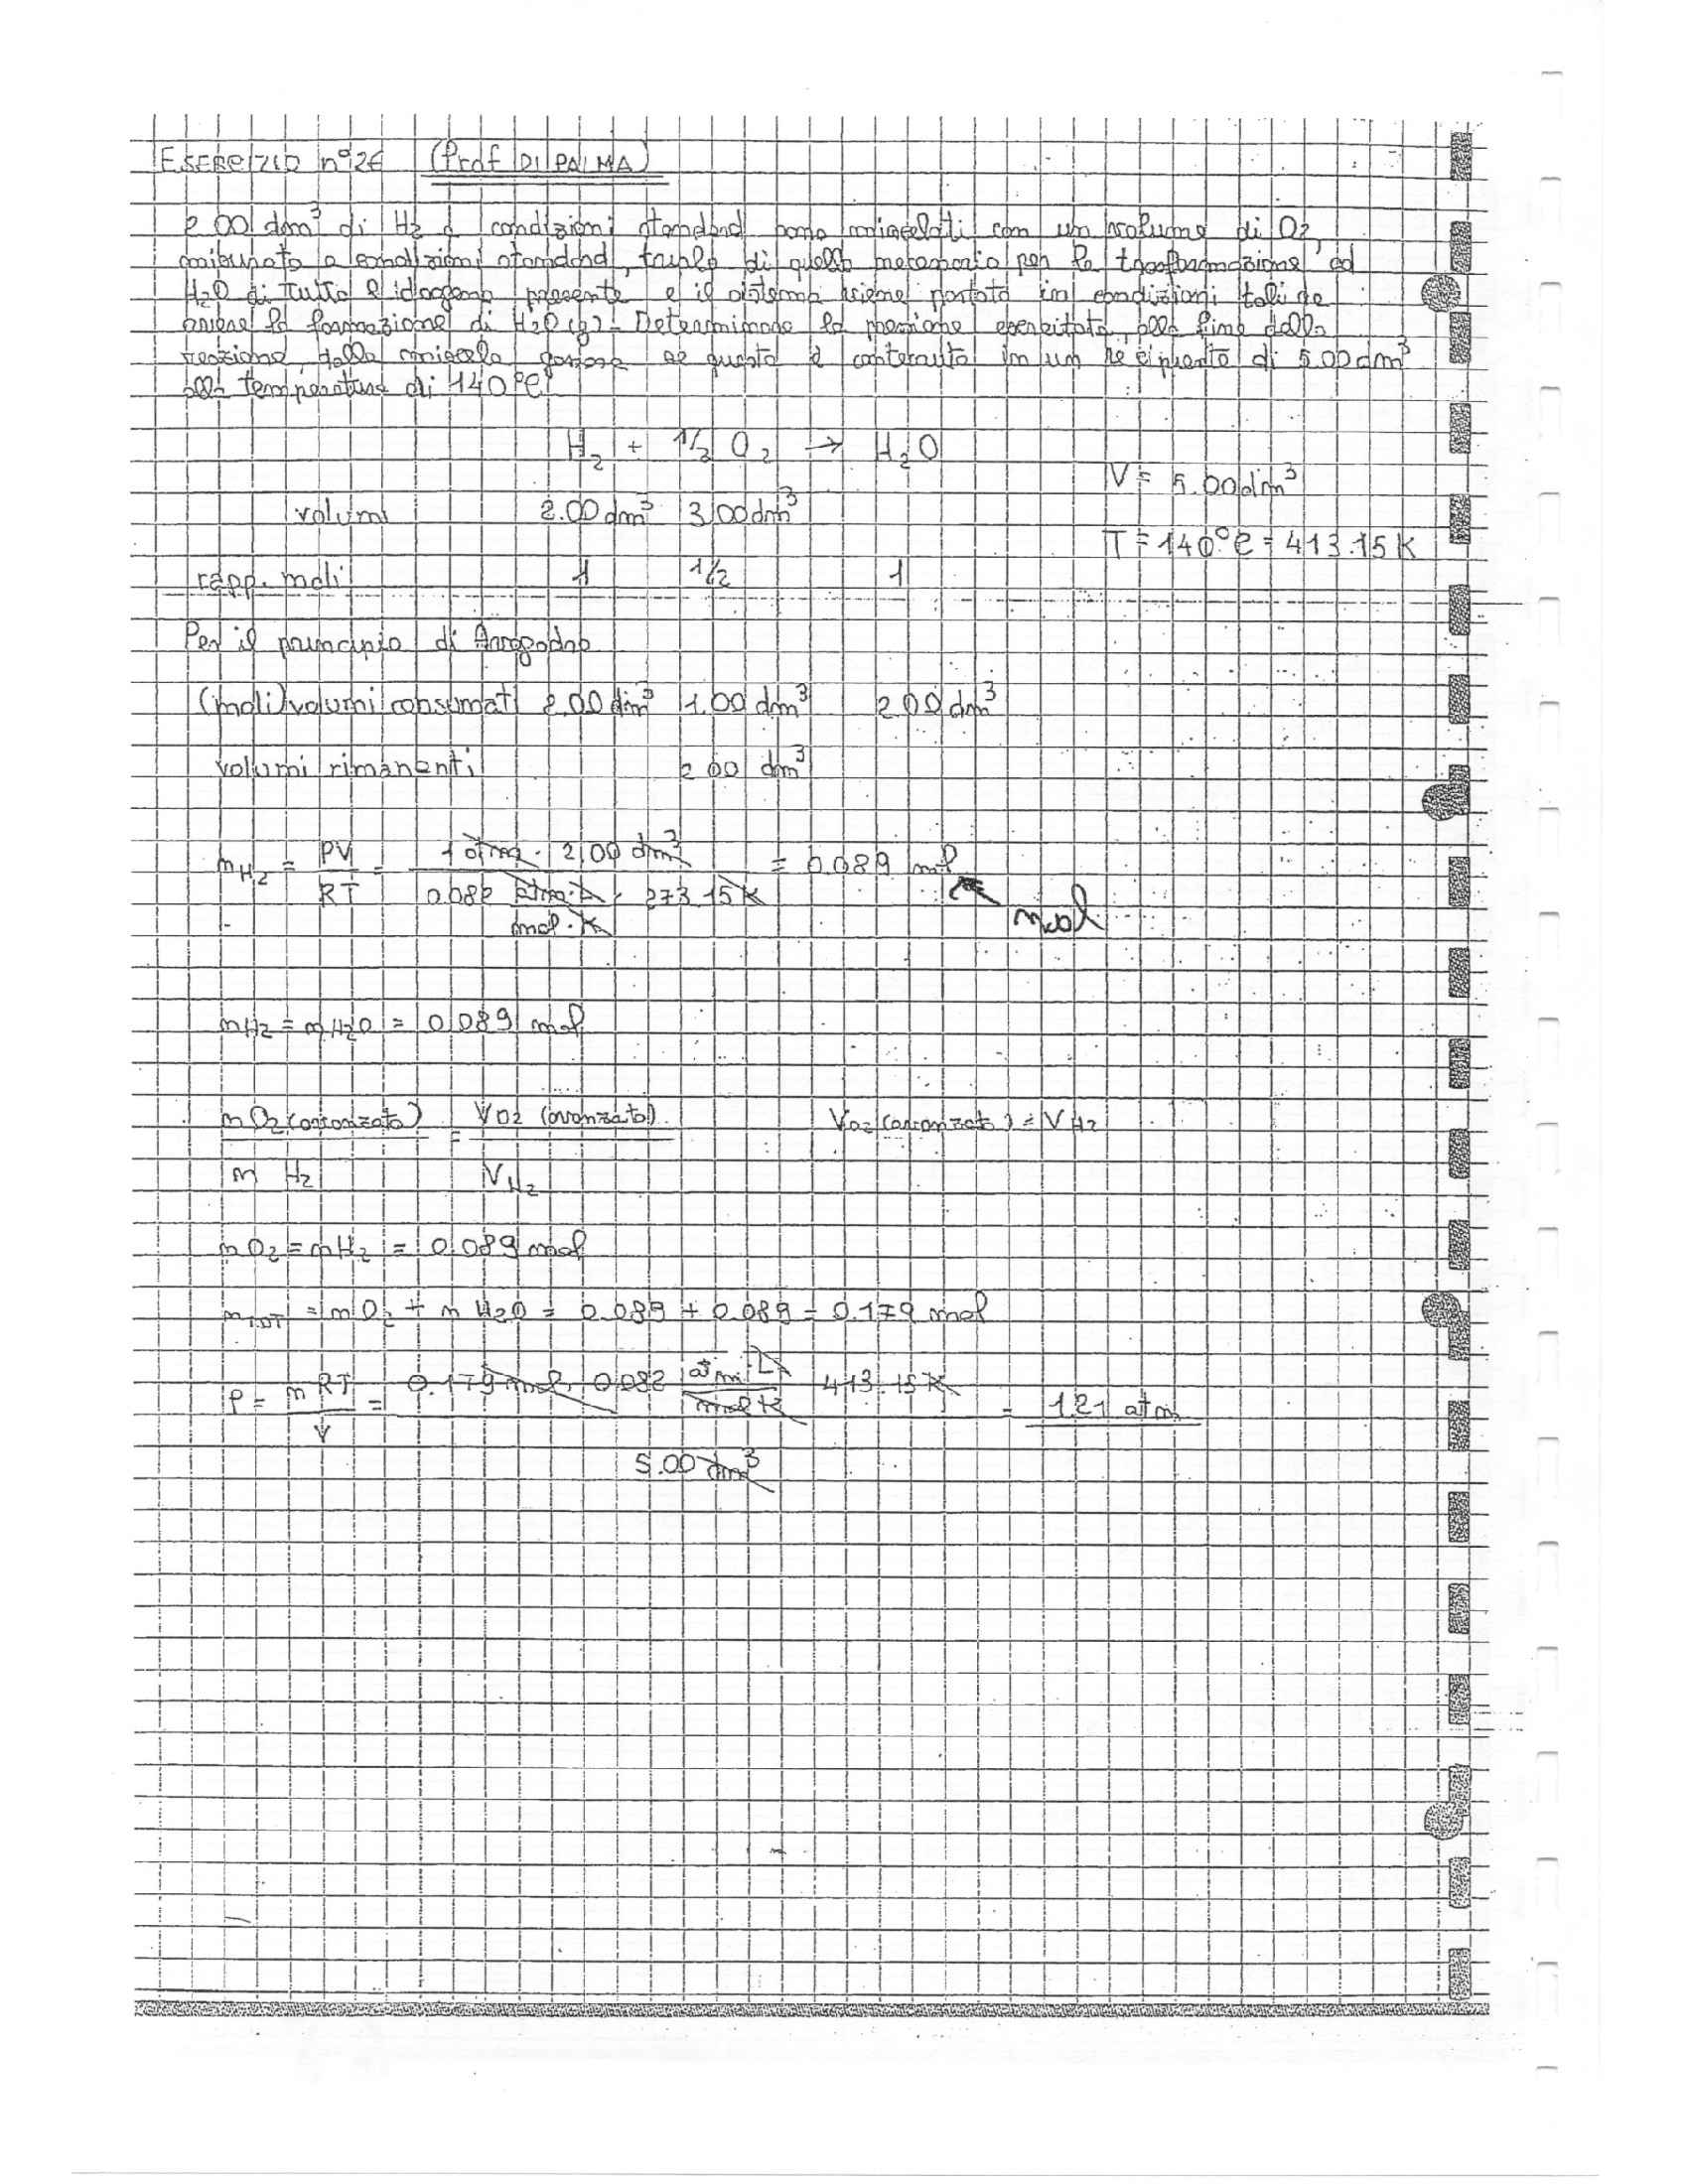 ESERCIZIO n° 26 (Prof DI PALMA)
2.00 dm³ di H2 a condizioni standard sono miscelati con un volume di O2,
misurato a condizioni standard, triplo di quello necessario per la trasformazione ad
H2O di tutto l'idrogeno presente e il sistema viene portato in condizioni tali che
avviene la formazione di H2O (g) - Determinare la pressione esercitata, alla fine della
reazione, dalla miscela gassosa se questa è contenuta in un recipiente di 5.00 dm³
alla temperatura di 140°C
H₂ + 1/2 O₂ → H₂O
V = 5.00 dm³
volumi 2.00 dm³ 3.00 dm³
T = 140°C = 413.15 K
rapp. moli 1 1/2 1
Per il principio di Avogadro
(moli) volumi consumati 2.00 dm³ 1.00 dm³ 2.00 dm³
volumi rimanenti 2.00 dm³
nH₂ = PV = 1 atm · 2.00 dm³ = 0.089 mol
RT 0.082 atm·L · 273.15 K
mol·K
mol
nH2 = nH2O = 0.089 mol
nO2 (avanzato) = VO2 (avanzato) VO2 (avanzato) = VH2
n H2 VH2
nO2 = nH2 = 0.089 mol
nTOT = nO2 + nH2O = 0.089 + 0.089 = 0.179 mol
P = nRT = 0.179 mol · 0.082 atm·L 413.15 K = 1.21 atm
V mol K
5.00 dm³